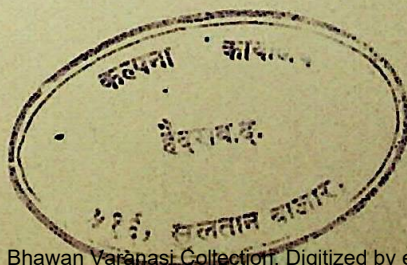 कल्पना कार्यालय
हैदराबाद.
५१६, सुलतान बाजार.
Bhawan Varanasi Collection. Digitized by e